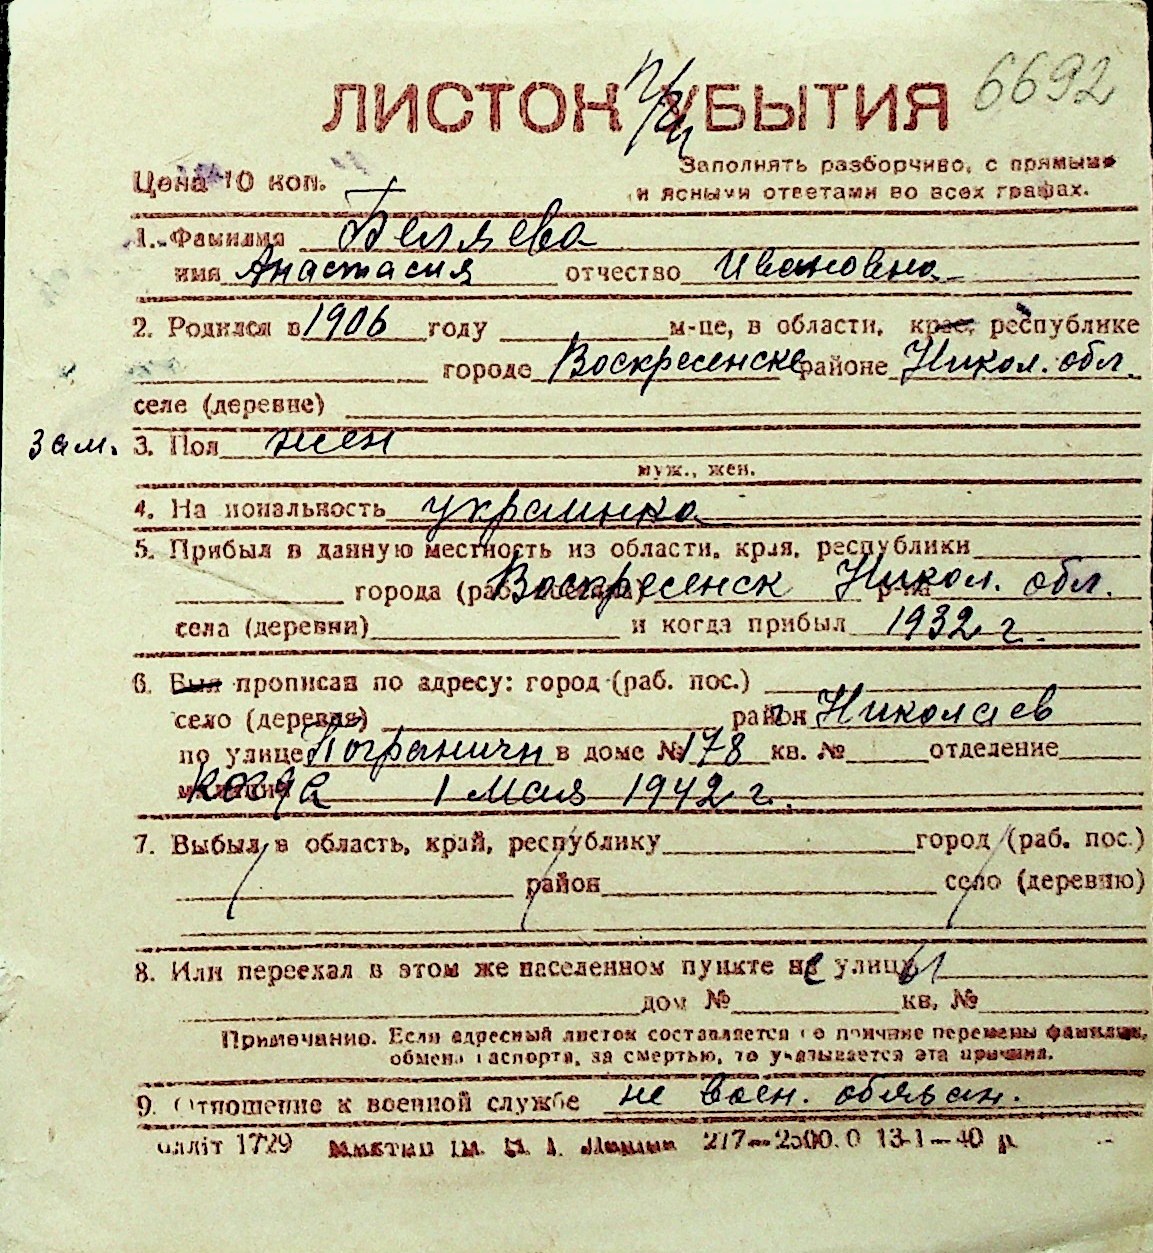 ЛИСТОК УБЫТИЯ 6692
Цена 10 коп. Заполнять разборчиво, с прямыми
и ясными ответами во всех графах.
1. Фамилия Беляева
имя Анастасия отчество Ивановна
2. Родился в 1906 году м-це, в области, крае, республике
городе Воскресенске районе Никол. обл.
селе (деревне)
зам. 3. Пол жен
муж., жен.
4. Национальность украинка
5. Прибыл в данную местность из области, края, республики
города (раб. Воскресенск Никол. обл.
села (деревни) и когда прибыл 1932 г.
6. Был прописан по адресу: город (раб. пос.)
село (деревня) район Николаев
по улице Погранични в доме № 178 кв. № отделение
милиции когда 1 мая 1942 г.
7. Выбыл в область, край, республику город (раб. пос.)
район село (деревню)
8. Или переехал в этом же населенном пункте на улицу
дом № кв. №
Примечание. Если адресный листок составляется по причине перемены фамилии,
обмена паспорта, за смертью, то указывается эта причина.
9. Отношение к военной службе не воен. обязан.
1729 277—2500.0 13-1—40 р